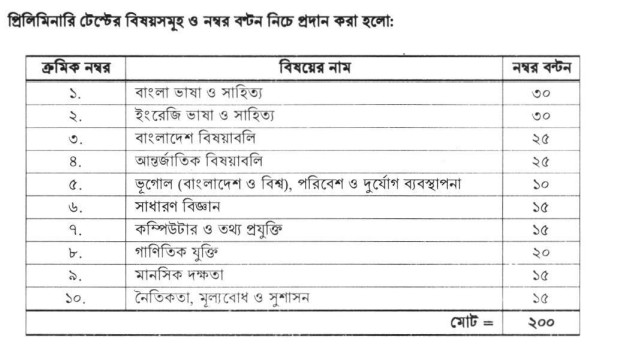 প্রিলিমিনারি টেস্টের বিষয়সমূহ ও নম্বর বণ্টন নিচে প্রদান করা হলো:
ক্রমিক নম্বর বিষয়ের নাম নম্বর বন্টন
১. বাংলা ভাষা ও সাহিত্য ৩০
২. ইংরেজি ভাষা ও সাহিত্য ৩০
৩. বাংলাদেশ বিষয়াবলি ২৫
৪. আন্তর্জাতিক বিষয়াবলি ২৫
৫. ভূগোল (বাংলাদেশ ও বিশ্ব), পরিবেশ ও দুর্যোগ ব্যবস্থাপনা ১০
৬. সাধারণ বিজ্ঞান ১৫
৭. কম্পিউটার ও তথ্য প্রযুক্তি ১৫
৮. গাণিতিক যুক্তি ২০
৯. মানসিক দক্ষতা ১৫
১০. নৈতিকতা, মূল্যবোধ ও সুশাসন ১৫
মোট = ২০০